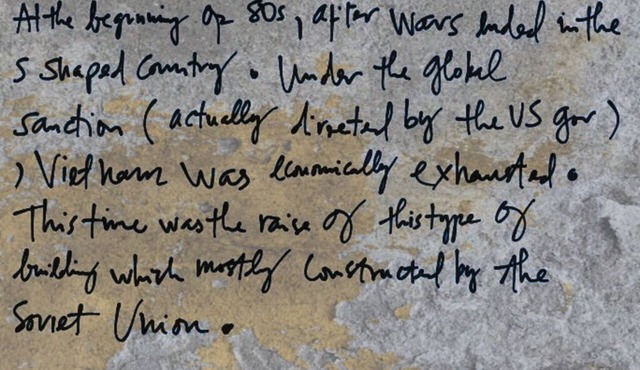 At the beginning of 80s, after wars ended in the
S shaped country. Under the global
sanction (actually directed by the US gov)
, Vietnam was economically exhausted.
This time was the raise of this type of
building which mostly constructed by the
Soviet Union.